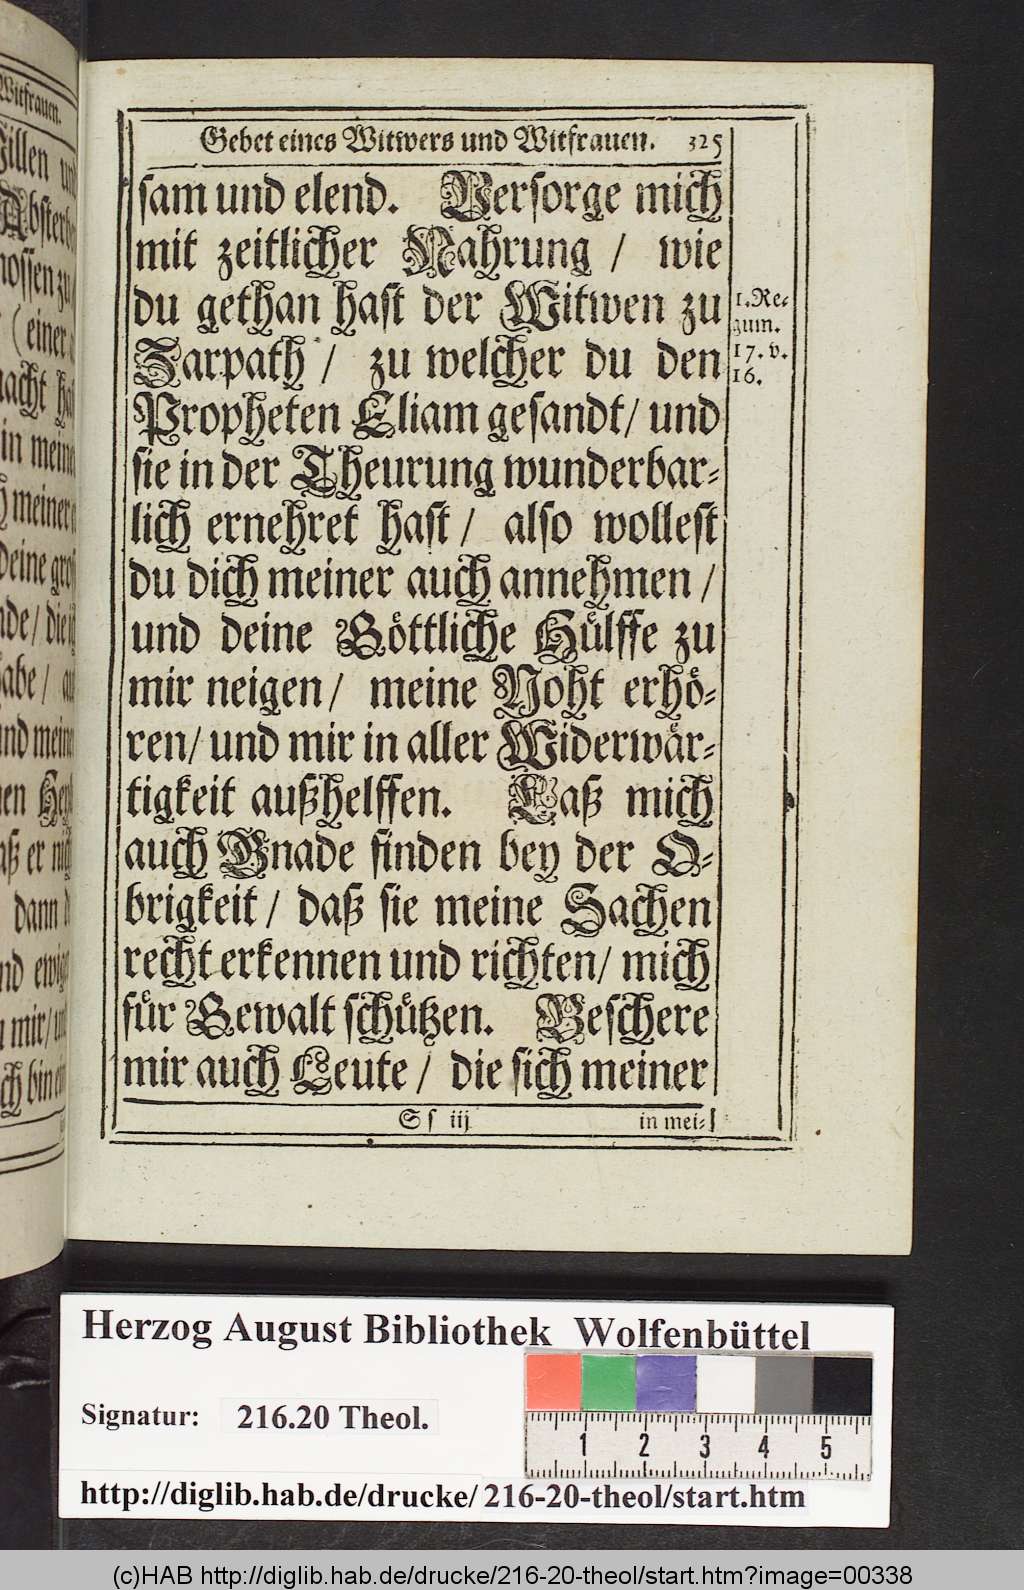 Gebet eines Witwers und Witfrauen. 325
sam und elend. Versorge mich
mit zeitlicher Nahrung / wie
du gethan hast der Witwen zu
Zarpath / zu welcher du den
Propheten Eliam gesandt / und
sie in der Theurung wunderbar-
lich ernehret hast / also wollest
du dich meiner auch annehmen /
und deine Göttliche Hülffe zu
mir neigen / meine Noht erhö-
ren / und mir in aller Widerwär-
tigkeit außhelffen. Laß mich
auch Gnade finden bey der O-
brigkeit / daß sie meine Sachen
recht erkennen und richten / mich
für Gewalt schützen. Beschere
mir auch Leute / die sich meiner
1. Re-
gum.
17. v.
16.
S s iij
in mei-
Witfrauen.
illen und
Abster
nossen zu
(einer
macht ha
in meine
meiner
Deine gro
nde / die
abe /
und meine
nen
aß er nich
dann
nd ewig
mir /
ch bin ein
Herzog August Bibliothek Wolfenbüttel
Signatur: 216.20 Theol.
1 2 3 4 5
http://diglib.hab.de/drucke/216-20-theol/start.htm
(c)HAB http://diglib.hab.de/drucke/216-20-theol/start.htm?image=00338